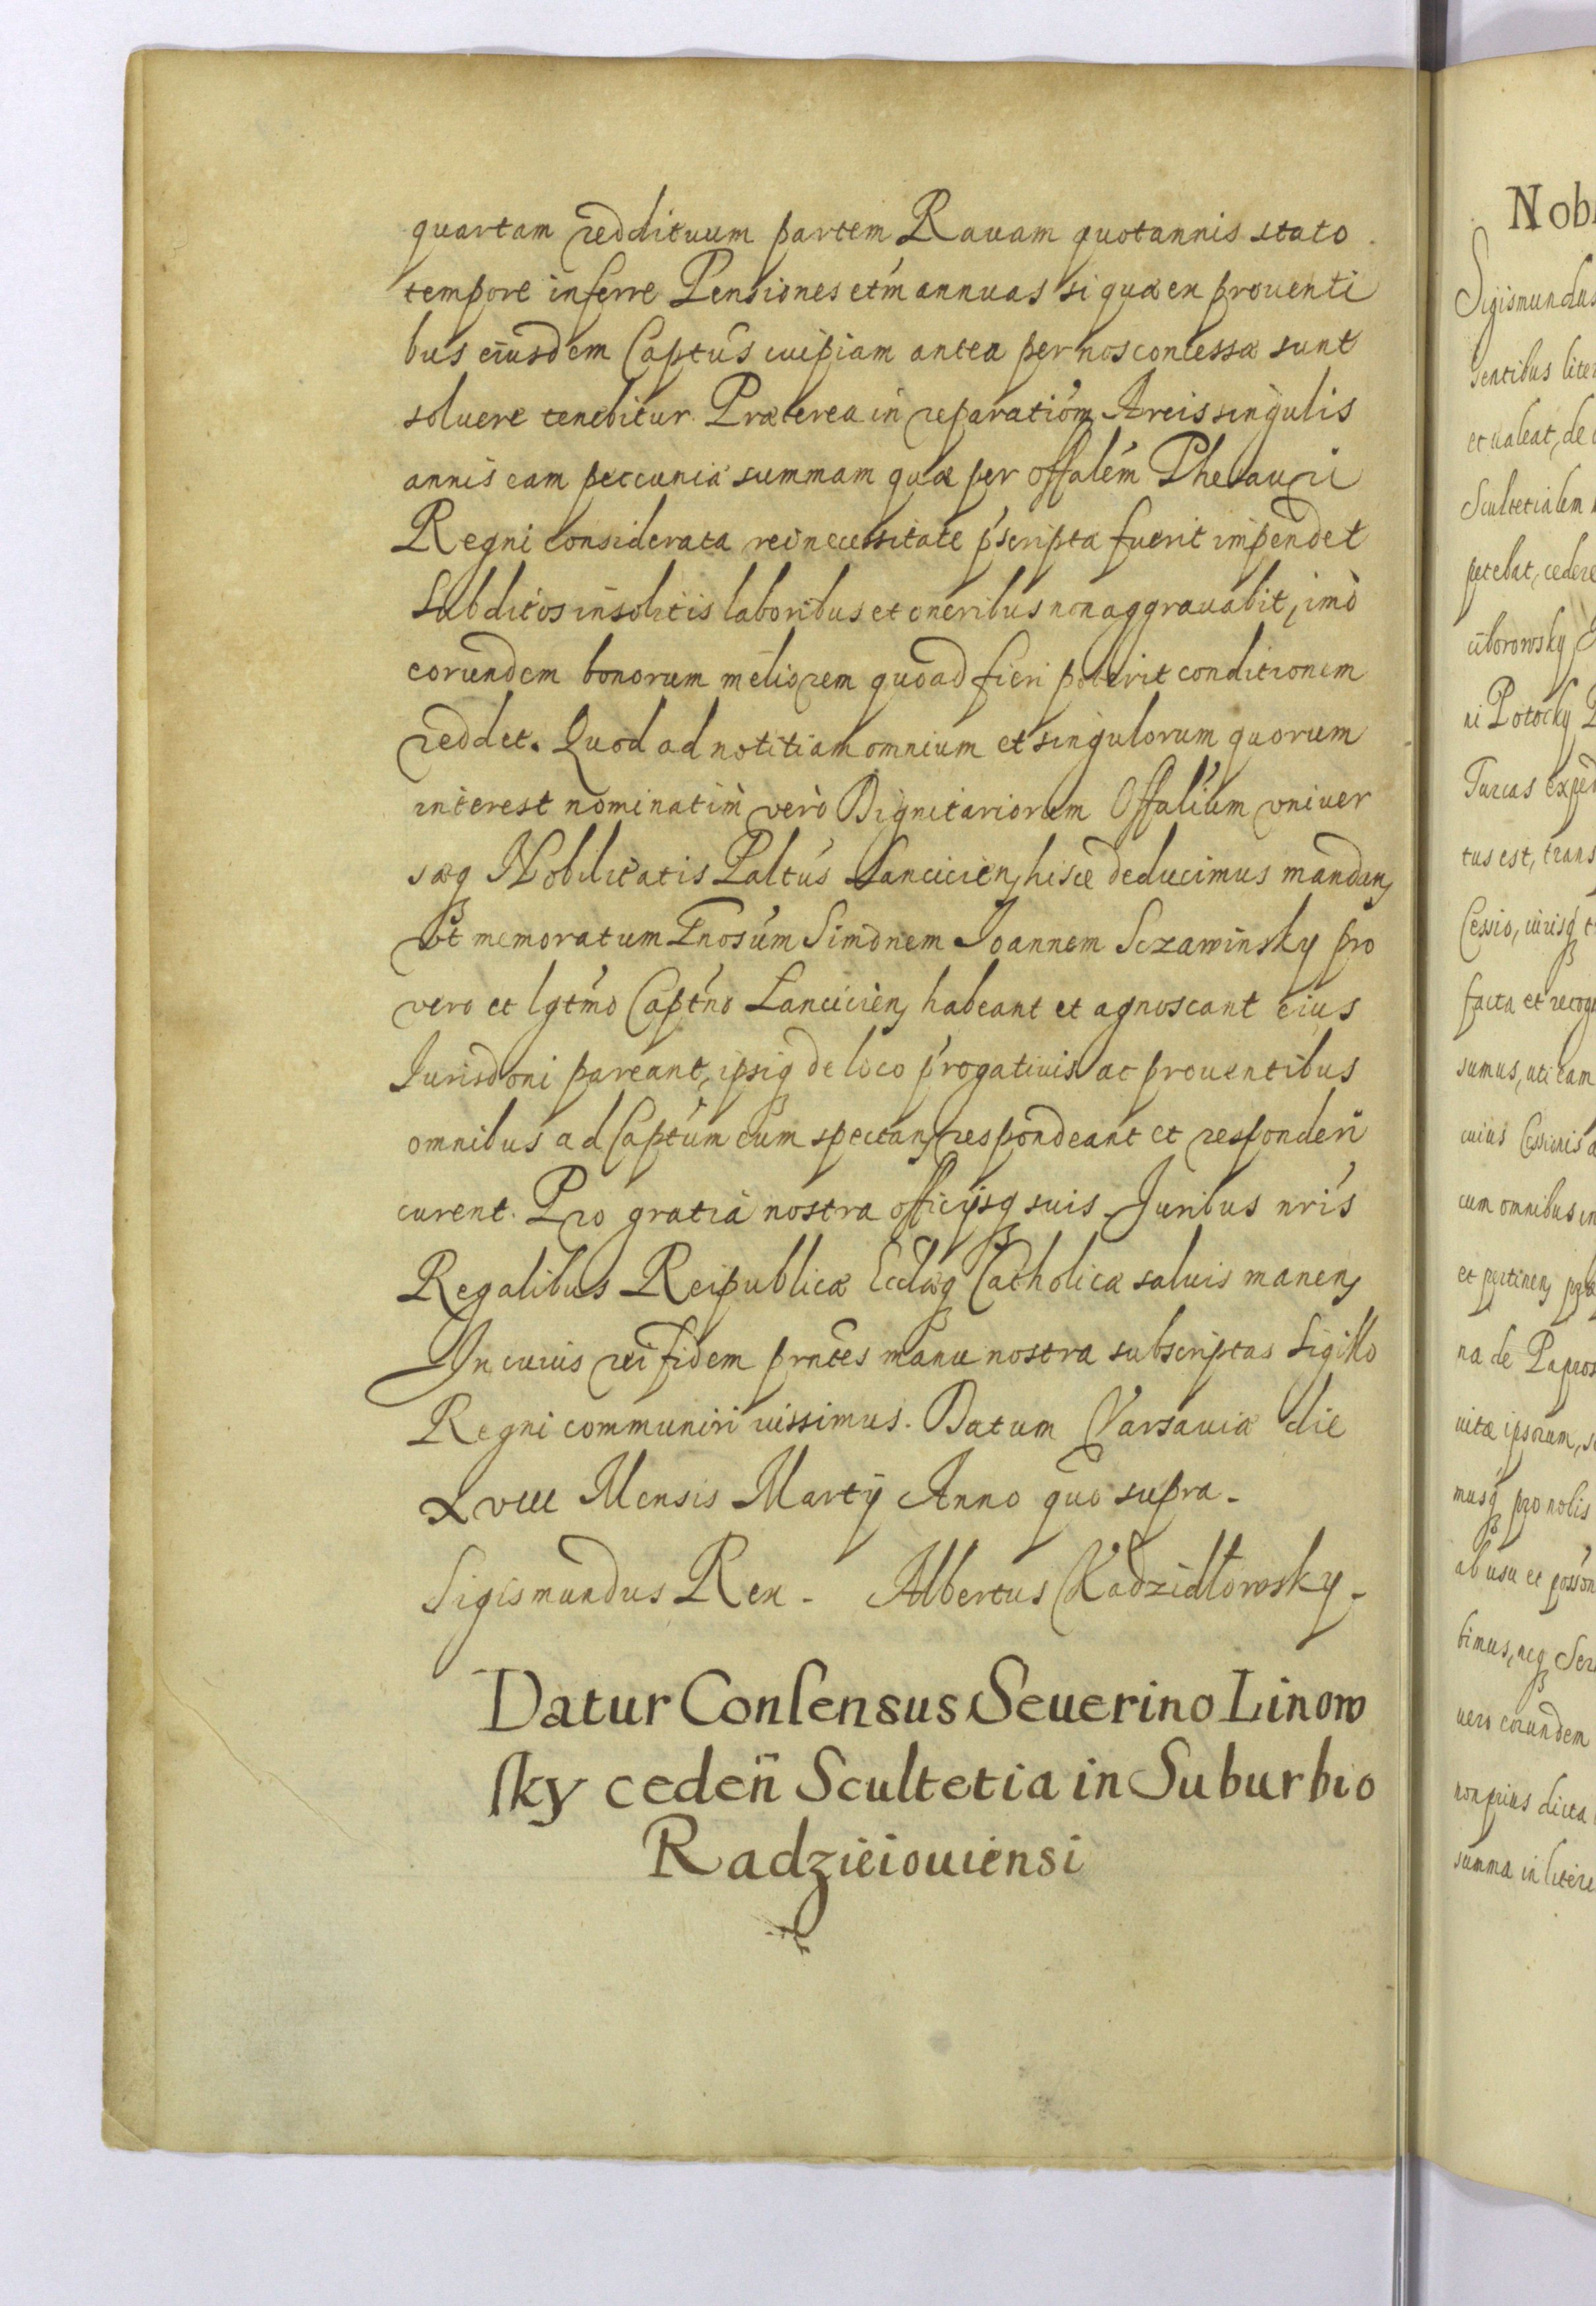 quartam reddituum partem Rauam quotannis stato
tempore inferre Pensiones etm̃ annuas si quæ ex prouenti
bus eiusdem Captũs cuipiam antea per nos concessæ sunt
soluere tenebitur. Præterea in reparatiõm Arcis singulis
annis eam peccuniæ summam quæ per offalẽm Thesauri
Regni considerata rei necessitate p̃scripta fuerit impendet
Subditos insolitis laboribus et oneribus non aggrauabit, imò
eorundem bonorum meliorem quoad fieri poterit conditionem
reddet. Quod ad notitiam omnium et singulorum quorum
interest nominatim verò Dignitariorum Offaliũm vniuer
sæq₃ Nobilitatis Paltũs Lancicień, hisce deducimus mandań,
vt memoratum Gnosũm Simonem Ioannem Sczawinsky pro
vero et lgtm̃o Captñ́o Lancicień, habeant et agnoscant eius
Iurisdoni pareant, ipsiq₃ de loco p̃rogatiuis ac prouentibus
omnibus ad Captũm eum spectań, respondeant et responderi
curent. Pro gratia nostra officijsq₃ suis Juribus nr̃is
Regalibus Reipublicæ Ecclæq₃ Catholicæ saluis maneń,
In cuius rei fidem prñtes manu nostra subscriptas Sigillo
Regni communiri iussimus. Datum Varsauiæ die
XVIII Mensis Martij Anno quo supra.
Sigismundus Rex. Albertus Kadzidłowsky.
Datur Consensus Seuerino Linow
sky cedeñ Scultetia in Suburbio
Radzieiouiensi
Nob
Sigismundus
sentibus liter
et ualeat, de
Scultetialem
petebat, cedere
ciborowsky
ni Potocky
Turcas exped
tus est, trans
Cessio, iurisq₃
facta et recog
sumus, uti eam
cuius Cessionis
cum omnibus in
et pertineń,
na de Papros
uitæ ipsorum,
musq₃ pro nobis
ab usu et possõn
bimus, neq₃ Sere
uero eorundem
non prius dicta
summa in litere